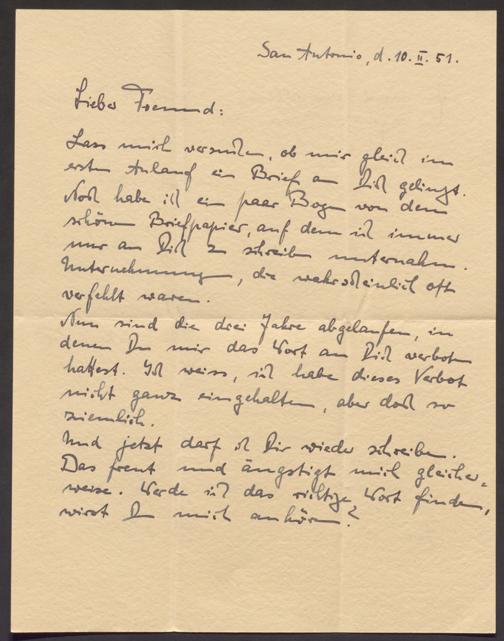 San Antonio, d. 10. II. 51.
Lieber Freund:
Lass mich versuchen, ob mir gleich im
ersten Anlauf ein Brief an Dich gelingt.
Noch habe ich ein paar Bogen von dem
schönen Briefpapier, auf dem ich immer
nur an Dich zu schreiben unternahm.
Unternehmungen, die wahrscheinlich oft
verfehlt waren.
Nun sind die drei Jahre abgelaufen, in
denen Du mir das Wort an Dich verboten
hattest. Ich weiss, ich habe dieses Verbot
nicht ganz eingehalten, aber doch so
ziemlich.
Und jetzt darf ich Dir wieder schreiben.
Das freut und ängstigt mich gleicher-
weise. Werde ich das richtige Wort finden,
wirst Du mich anhören?